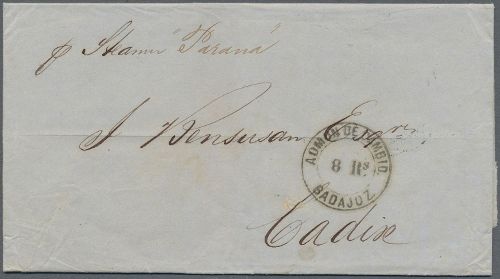 p Steamer "Paraná"
J. Bensusan Esqre
ADMON DE CAMBIO.
8 Rs
BADAJOZ.
Cadix